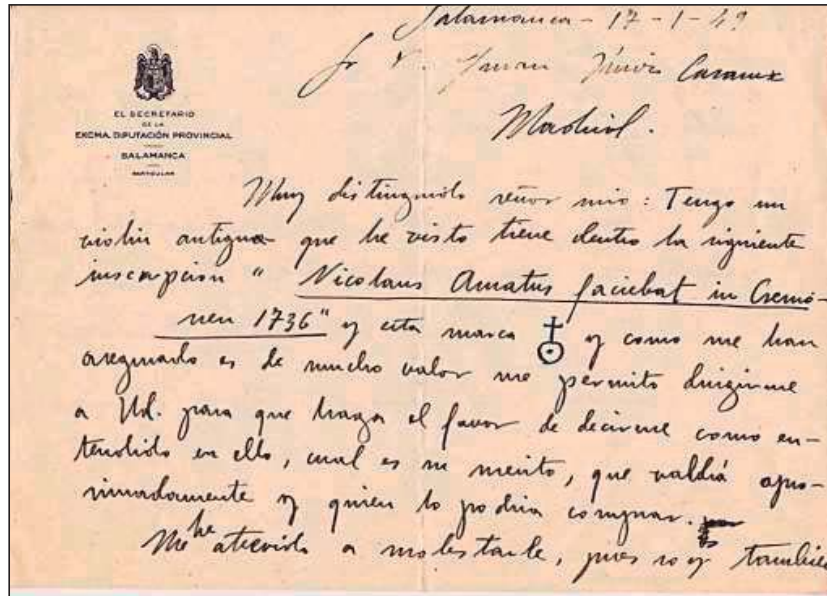 Salamanca - 17-1-49
Sr D. Juan Casaux
Madrid.
EL SECRETARIO
DE LA
EXCMA. DIPUTACIÓN PROVINCIAL
SALAMANCA
PARTICULAR
Muy distinguido señor mio: Tengo un
violin antiguo que he visto tiene dentro la siguiente
inscripcion " Nicolaus Amatus faciebat in Cremo-
nen 1736" y esta marca y como me han
asegurado es de mucho valor me permito dirigirme
a Ud. para que haga el favor de decirme como en-
tendido en ello, cual es su merito, que valdrá apro-
ximadamente y quien lo podria comprar.
Me he atrevido a molestarle, pues soy tambien